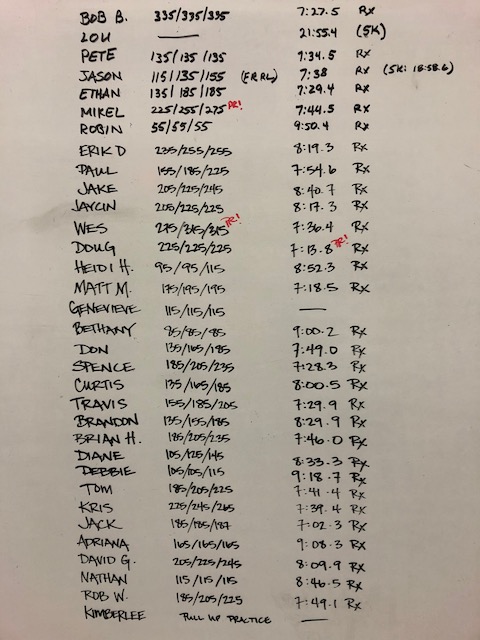 BOB B. 335/335/335 7:27.5 Rx
LOU — 21:55.4 (5K)
PETE 135/135/135 7:34.5 Rx
JASON 115/135/155 (FR RL) 7:38 Rx (5K: 18:58.6)
ETHAN 135/185/185 7:29.4 Rx
MIKEL 225/255/275 PR! 7:44.5 Rx
ROBIN 55/55/55 9:50.4 Rx
ERIK D 235/255/255 8:19.3 Rx
PAUL 155/185/225 7:54.6 Rx
JAKE 205/225/245 8:40.7 Rx
JAYCIN 205/225/225 8:17.3 Rx
WES 275/315/315 PR! 7:36.4 Rx
DOUG 225/225/225 7:13.8 PR! Rx
HEIDI H. 95/95/115 8:52.3 Rx
MATT M. 175/195/195 7:18.5 Rx
GENEVIEVE 115/115/115 —
BETHANY 85/85/85 9:00.2 Rx
DON 135/165/185 7:49.0 Rx
SPENCE 185/205/235 7:28.3 Rx
CURTIS 135/165/185 8:00.5 Rx
TRAVIS 155/185/205 7:29.9 Rx
BRANDON 135/155/185 8:29.9 Rx
BRIAN H. 185/205/235 7:46.0 Rx
DIANE 105/125/145 8:33.3 Rx
DEBBIE 105/105/115 9:18.7 Rx
TOM 185/205/225 7:41.4 Rx
KRIS 225/245/265 7:39.4 Rx
JACK 185/185/187 7:02.3 Rx
ADRIANA 165/165/165 9:08.3 Rx
DAVID G. 205/225/245 8:09.9 Rx
NATHAN 115/115/115 8:46.5 Rx
ROB W. 185/205/225 7:49.1 Rx
KIMBERLEE PULL UP PRACTICE —